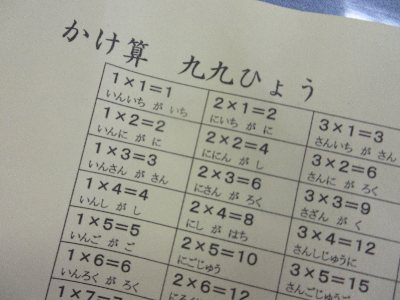 かけ算 九九ひょう
1×1=1 2×1=2 3×1=3
いんいち が いち にいち が に さんいち が さん
1×2=2 2×2=4 3×2=6
いんに が に ににん が し さんに が ろく
1×3=3 2×3=6 3×3=9
いんさん が さん にさん が ろく さざん が く
1×4=4 2×4=8 3×4=12
いんし が し にし が はち さんしじゅうに
1×5=5 2×5=10 3×5=15
いんご が ご にごじゅう さんごじゅうご
1×6=6 2×6=12
いんろく が ろく